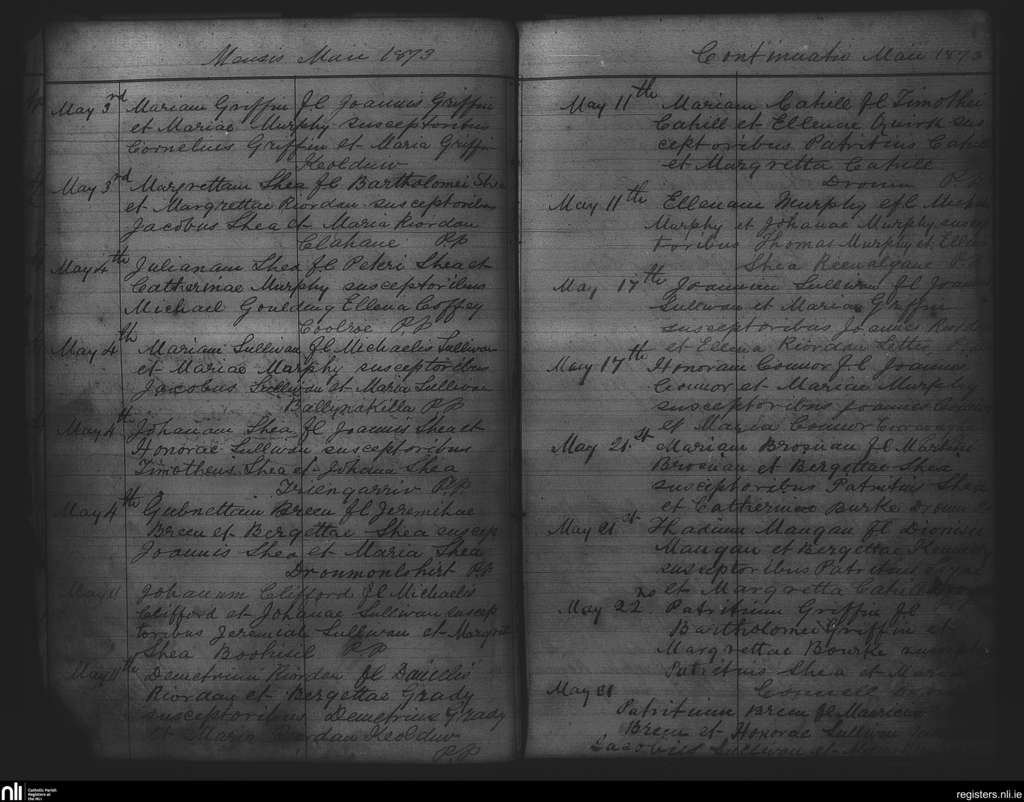 Mensis Maii 1873
May 3rd Mariam Griffin fl Joannis Griffin
et Mariae Murphy susceptoribus
Cornelius Griffin et Maria Griffin
Keolduw
May 3rd Margrettam Shea fl Bartholomei Shea
et Margrettae Riordan susceptoribus
Jacobus Shea et Maria Riordan
Clahane P.P
May 4th Julianam Shea fl Peteri Shea et
Catherinae Murphy susceptoribus
Michael Goulding Ellena Coffey
Coolroe P.P
May 4th Mariam Sullivan fl Michaelis Sullivan
et Mariae Murphy susceptoribus
Jacobus Sullivan et Maria Sullivan
Ballynakilla P.P
May 4th Johanam Shea fl Joannis Shea et
Honorae Sullivan susceptoribus
Timotheus Shea et Johana Shea
Triengarriv P.P.
May 4th Gubnettam Breen fl Jeremihae
Breen et Bergettae Shea suscep
Joannis Shea et Maria Shea
Dronmonlohirt P.P
May 11 Johanam Clifford fl Michaelis
Clifford et Johanae Sullivan suscep
toribus Jeremiah Sullivan et Margret
Shea P.P
May 11th Demetrium Riordan fl Danielis
Riordan et Bergettae Grady
susceptoribus Demetrius Grady
et Maria Riordan Keolduw
P.P
Continuatio Maii 1873
May 11th Mariam Cahill fl Timothei
Cahill et Ellenae Quirk sus
ceptoribus Patritius Cahill
et Margretta Cahill
Dromin P.P
May 11th Ellenam Murphy fl
Murphy et Johanae Murphy suscep
toribus Thomas Murphy et Ellen
Shea
May 17th Joannem Sullivan fl
Sullivan et Mariae Griffin
susceptoribus Joannes
et Ellena Riordan
May 17th Honoram Connor fl Joannis
Connor et Mariae Murphy
susceptoribus Joannes Connor
et Maria Connor
May 21st Mariam Brosnan fl
Brosnan et Bergettae Shea
susceptoribus Patritius Shea
et Catherinae Burke Dromin
May 21st Thadium Mangan fl Dionisii
Mangan et Bergettae
susceptoribus Patritius
et Margretta Cahill
May 22nd Patritium Griffin fl
Bartholomei Griffin et
Margrettae Bourke
Patritius Shea et
Connell
May 31 Patritium Breen fl
Breen et Honorae Sullivan
Jacobus Sullivan et
nli Catholic Parish
Registers at
the NLI
registers.nli.ie